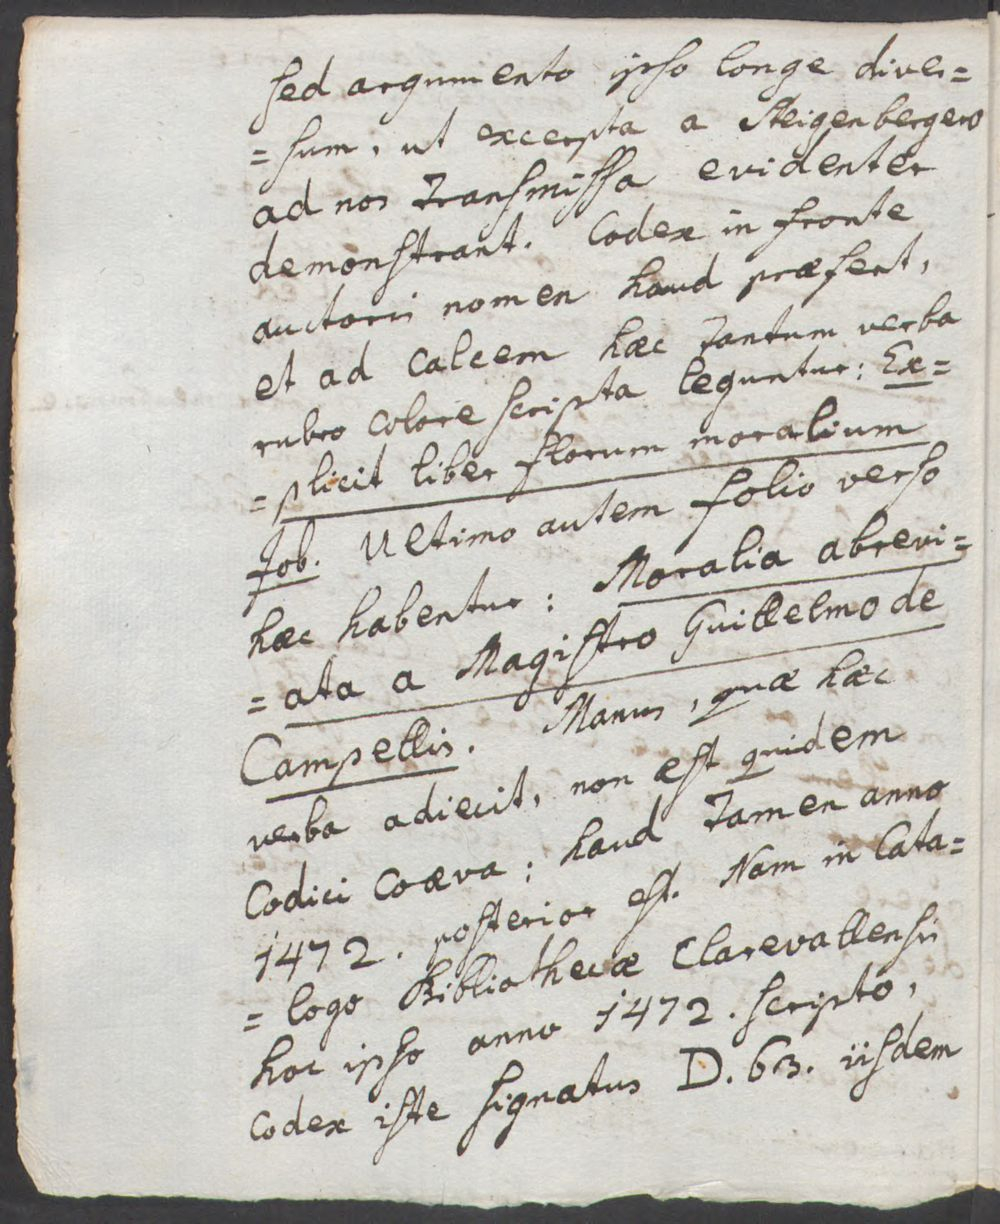 sed argumento ipso longe diver=
=sum, ut excerpta a Steigenbergero
ad nos transmissa evidenter
demonstrant. Codex in fronte
auctoris nomen haud præfert,
et ad calcem hæc tantum verba
rubro colore scripta leguntur: Ex=
=plicit liber florum moralium
Job. Ultimo autem folio verso
hæc habentur: Moralia abrevi=
=ata a Magistro Guillelmo de
Campellis. Manus, quæ hæc
verba adiecit, non est quidem
Codici coæva; haud tamen anno
1472. posterior est. Nam in Cata=
=logo Bibliothecæ Clarevallensis
hoc ipso anno 1472. scripto,
codex iste signatus D. 63. iisdem